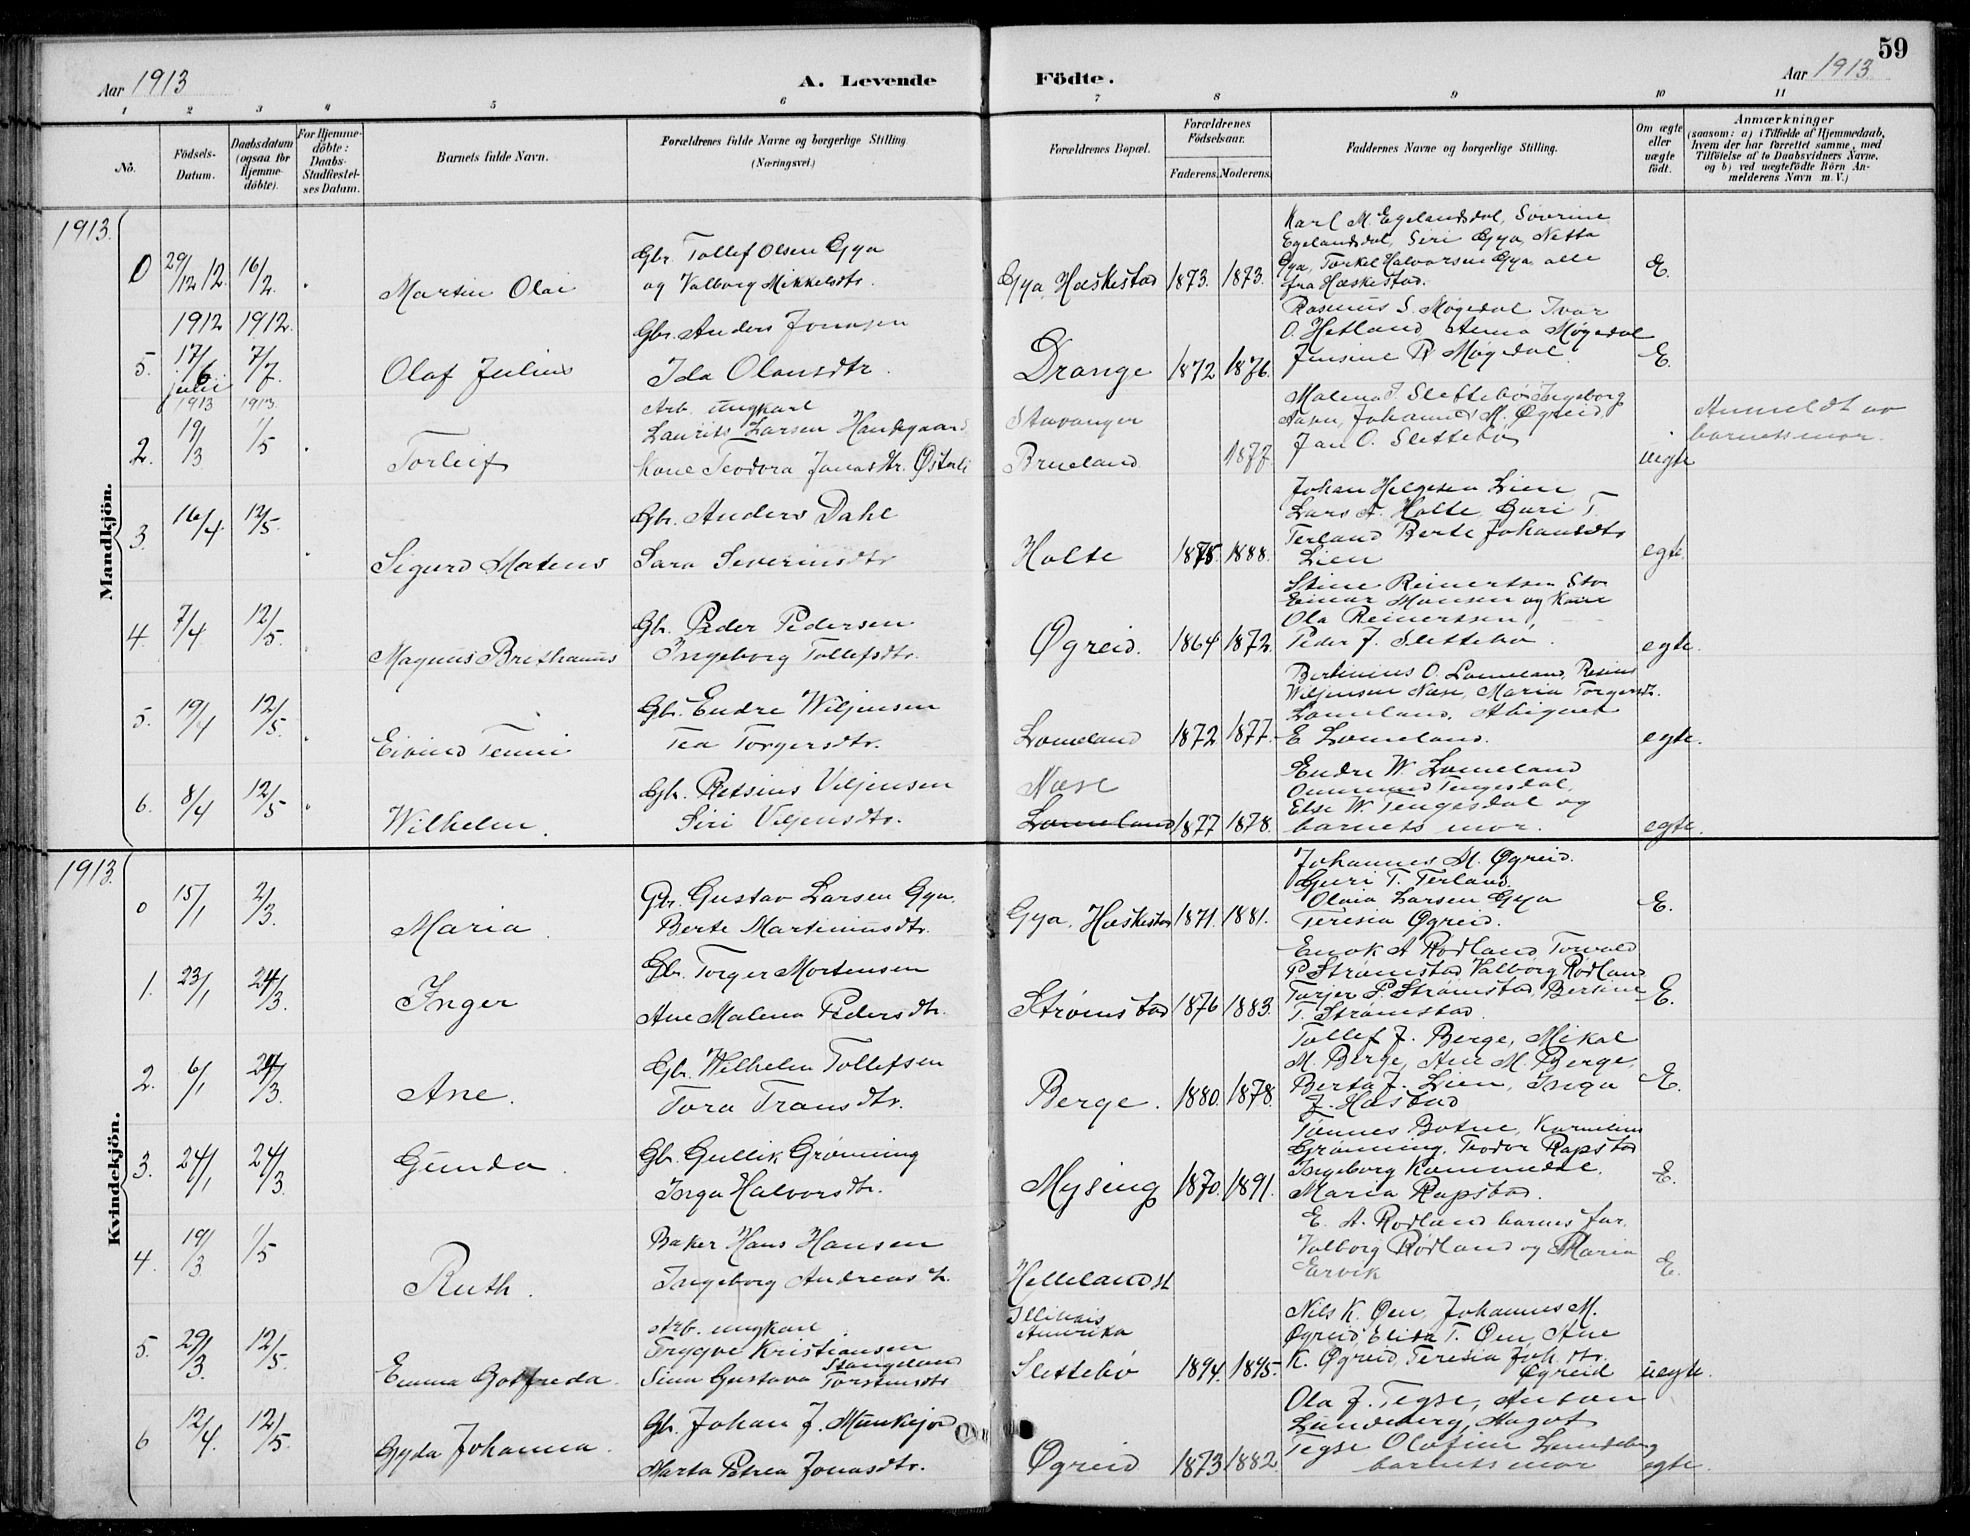 59
Aar 1913
A. Levende Födte.
Aar 1913
1 2 3 4 5 6 7 8 9 10 11
No.
Födsels-Datum.
Daabsdatum (ogsaa for Hjemmedöbte).
For Hjemmedöbte: Daabs-Stadfæstelses Datum.
Barnets fulde Navn.
Forældrenes fulde Navne og borgerlige Stilling (Næringsvei.)
Forældrenes Bopæl.
Forældrenes Födselsaar.
Faderens. Moderens.
Faddernes Navne og borgerlige Stilling.
Om ægte eller uægte födt.
Anmærkninger
(saasom: a) i Tilfælde af Hjemmedaab, hvem der har forrettet samme, med Tilföielse af to Daabsvidners Navne, og b) ved uægtefödte Börn Anmelderens Navn m. V.)
Mandkjön.
1913.
0 29/12 12. 16/2. Martin Olai
Gbr. Tollef Olsen Gya
og Valborg Mikkelsdtr.
Gya, Hæskestad 1873. 1873.
Karl M. Egelandsdal, Severine
Egelandsdal, Siri Gya, Netta
Gya, Torkel Halvorsen Gya alle
fra Hæskestad.
E.
1912 1912.
5. 17/6 juli 7/7. Olaf Julius
Gbr. Anders Jonasen
Ida Olausdtr.
Drange 1872 1876.
Rasmus S. Møgedal Ivar
O. Hetland, Anna Møgedal
Jensine R Møgedal.
E.
1913 1913.
2. 19/3 1/5 Torleif
Arb. ungkarl
Laurits Larsen Haudegaard
kone Teodora Jonasdtr. Østerli
Stavanger
Brueland 1877
Malena J. Slettebø Ingeborg
Aasen, Johannes M. Øgreid
Jan O. Slettebø
uegte
Anmeldt av
barnets mor.
3. 16/4. 12/5. Sigurd Matens
Gbr. Anders Dahl
Sara Severinsdtr
Holte 1875. 1888.
Johan Helgesen Lien
Lars A. Holte, Guri T.
Terland Berte Johansdtr
Lien
egte.
4. 7/4 12/5. Magnus Brithanus
Gbr. Peder Pedersen
Ingeborg Tollefsdtr.
Øgreid. 1864 1872.
Stine Reinertsen Stor
Einar Hansen og kone
Ola Reinertsen,
Peder J. Slettebø.
egte.
5. 19/4 12/5. Eivind Temi
Gbr. Endre Wiljensen
Tea Torgersdtr.
Lomeland 1872 1877.
Bertinius O. Lomeland, Resius
Wiljensen Næse, Maria Torgersdtr.
Lomeland. Abigael
E Lomeland.
egte.
6. 8/4 12/5 Wilhelm.
Gbr. Retsius Viljensen
Siri Viljensdtr.
Næse
Lomeland 1877 1878.
Endre W. Lomeland
Ommund Tengesdal,
Else W. Tengesdal og
barnets mor.
egte.
Kvindekjön.
1913.
0 15/1 2/3. Maria.
Gbr. Gustav Larsen Gya.
Berte Martiniusdtr.
Gya, Hæskestad 1871. 1881.
Johannes M. Øgreid.
Guri T. Terland.
Olaia Larsen Gya
Teresia Øgreid.
E.
1. 23/1 24/3. Inger
Gbr. Torger Mortensen
Ane Malena Pedersdtr.
Strømstad 1876 1883.
Enok A Rødland, Torvald
P. Strømstad, Valborg Rødland
Torjer P. Strømstad, Bertine
T. Strømstad.
E.
2. 6/1 24/3. Ane.
Gbr. Wilhelm Tollefsen
Tora Transdtr.
Berge. 1880. 1878.
Tollef J. Berge, Mikal
M. Berge, Ane M. Berge,
Berta J. Lien, Inga
J. Hæstad
E.
3. 24/1 24/3 Gunda.
Gbr. Gullik Grønning
Inga Halvorsdtr.
Mysing 1870. 1891.
Tønnes Botne, Kornelius
Grønning, Teodor Rapstad
Ingeborg Kommedal.
Maria Rapstad.
E.
4. 19/3 1/5 Ruth.
Baker Hans Hansen
Ingeborg Andreasdtr.
Hellelandst
E. A. Rødland barnets far.
Valborg Rødland og Maria
Eervik
E.
5. 29/3. 12/5. Emma Gotfreda.
Arb. ungkarl
Trygve Kristiansen
Stangeland
Sina Gustava Torstensdtr
Illinois
Amerika
Slettebø 1894. 1895.
Nils K. Øen, Johannes M.
Øgreid, Elisa T. Øen, Ane
K. Øgreid, Teresia Joh.dtr.
Øgreid
uegte.
6 12/4. 12/5. Gyda Johanna.
Gbr. Johan J. Munkejord
Marta Petrea Jonasdtr.
Øgreid 1873 1882.
Ola J. Tegse, Anton
Lundeberg, Magot
Tegse Olafine Lundeberg
barnets mor
egte.